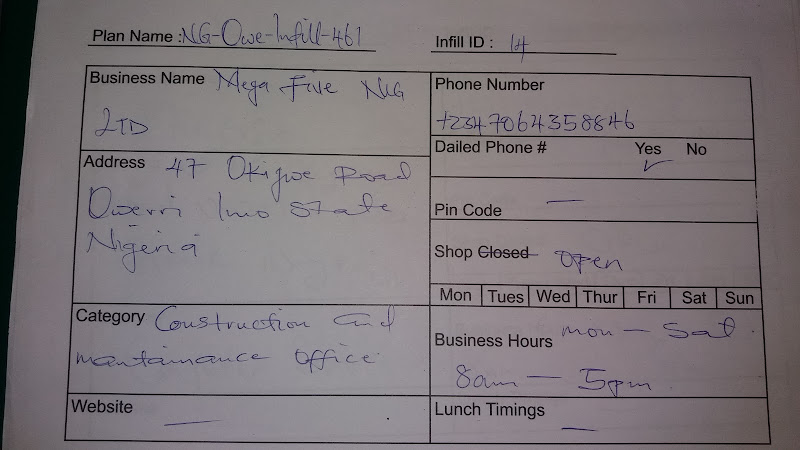 Plan Name : NG-Owe-Infill-461
Infill ID : 14
Business Name Mega Five NIG
LTD
Phone Number
+2347064358846
Dailed Phone # Yes No
✓
Address 47 Okigwe Road
Owerri Imo State
Nigeria
Pin Code —
Shop Closed open
Mon Tues Wed Thur Fri Sat Sun
Category Construction and
mantainance office
Business Hours mon — Sat
8am — 5pm
Website —
Lunch Timings —